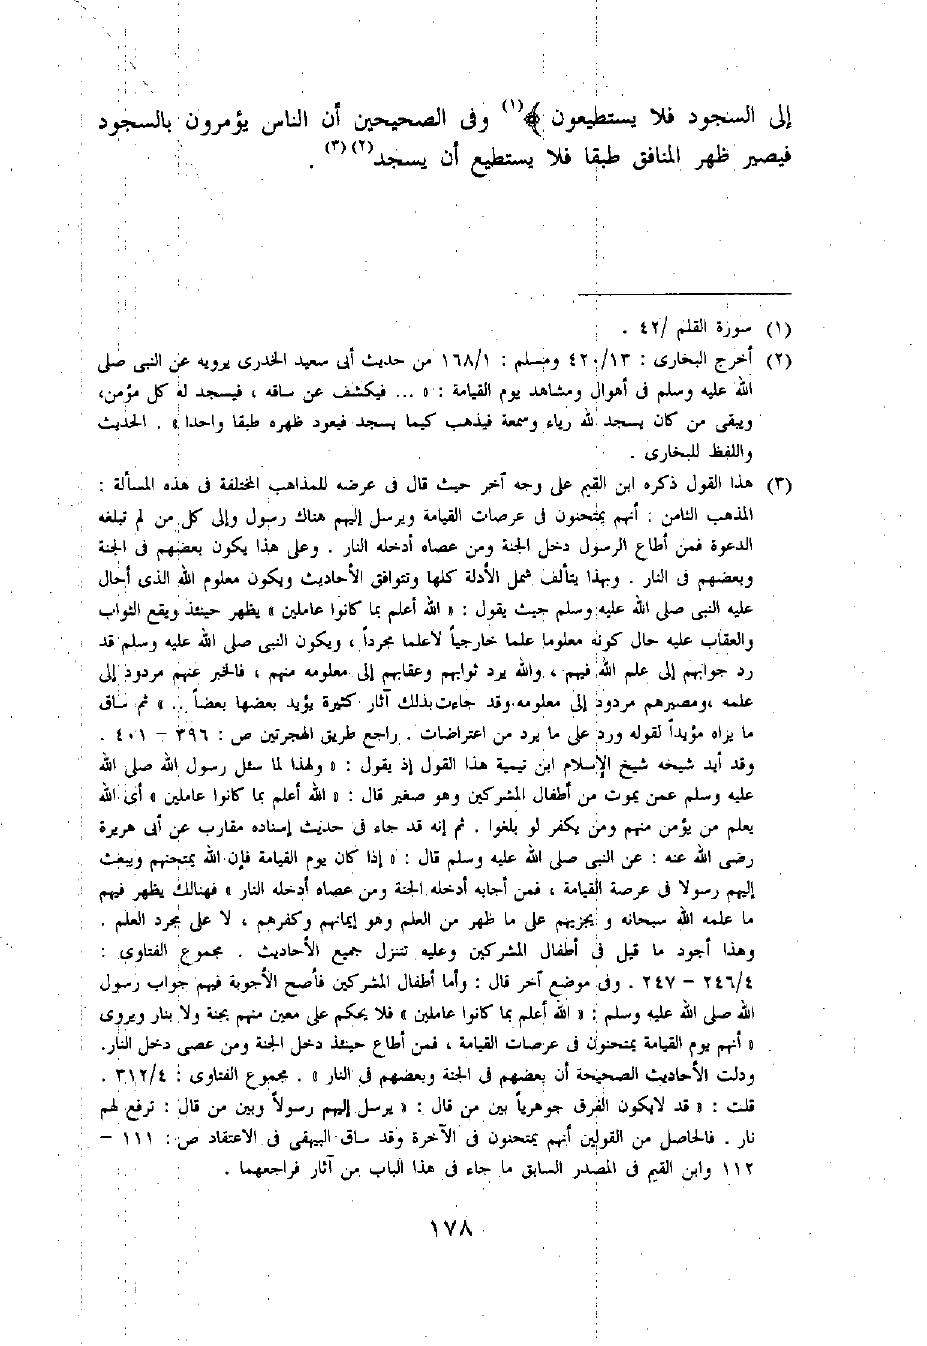 إلى السجود فلا يستطيعون ﴾(١) وفى الصحيحين أن الناس يؤمرون بالسجود
فيصير ظهر المنافق طبقا فلا يستطيع أن يسجد(٢)(٣) .
(١) سورة القلم /٤٢ .
(٢) أخرج البخارى : ٤٢٠/١٣ ومسلم : ١٦٨/١ من حديث أبى سعيد الخدرى يرويه عن النبى صلى
الله عليه وسلم فى أهوال ومشاهد يوم القيامة : « ... فيكشف عن ساقه ، فيسجد له كل مؤمن،
ويبقى من كان يسجد لله رياء وسمعة فيذهب كيما يسجد فيعود ظهره طبقا واحدا » . الحديث
واللفظ للبخارى .
(٣) هذا القول ذكره ابن القيم على وجه آخر حيث قال فى عرضه للمذاهب المختلفة فى هذه المسألة :
المذهب الثامن : أنهم يمتحنون فى عرصات القيامة ويرسل إليهم هناك رسول وإلى كل من لم تبلغه
الدعوة فمن أطاع الرسول دخل الجنة ومن عصاه أدخله النار . وعلى هذا يكون بعضهم فى الجنة
وبعضهم فى النار . وبهذا يتألف شمل الأدلة كلها وتتوافق الأحاديث ويكون معلوم الله الذى أحال
عليه النبى صلى الله عليه وسلم حيث يقول : « الله أعلم بما كانوا عاملين » يظهر حينئذ ويقع الثواب
والعقاب عليه حال كونه معلوما علما خارجياً لاعلما مجرداً ، ويكون النبى صلى الله عليه وسلم قد
رد جوابهم إلى علم الله فيهم ، والله يرد ثوابهم وعقابهم إلى معلومه منهم ، فالخبر عنهم مردود إلى
علمه ،ومصيرهم مردود إلى معلومه.وقد جاءت بذلك آثار كثيرة يؤيد بعضها بعضاً ... » ثم ساق
ما يراه مؤيداً لقوله ورد على ما يرد من اعتراضات . راجع طريق الهجرتين ص : ٣٩٦ – ٤٠١ .
وقد أيد شيخه شيخ الإسلام ابن تيمية هذا القول إذ يقول : « ولهذا لما سئل رسول الله صلى الله
عليه وسلم عمن يموت من أطفال المشركين وهو صغير قال : « الله أعلم بما كانوا عاملين » أى الله
يعلم من يؤمن منهم ومن يكفر لو بلغوا . ثم إنه قد جاء فى حديث إسناده مقارب عن أبى هريرة
رضى الله عنه : عن النبى صلى الله عليه وسلم قال : « إذا كان يوم القيامة فإن الله يمتحنهم ويبعث
إليهم رسولا فى عرصة القيامة ، فمن أجابه أدخله الجنة ومن عصاه أدخله النار » فهنالك يظهر فيهم
ما علمه الله سبحانه و يجزيهم على ما ظهر من العلم وهو إيمانهم وكفرهم ، لا على مجرد العلم .
وهذا أجود ما قيل فى أطفال المشركين وعليه تتنزل جميع الأحاديث . مجموع الفتاوى :
٢٤٦/٤ – ٢٤٧ . وفى موضع آخر قال : وأما أطفال المشركين فأصح الأجوبة فيهم جواب رسول
الله صلى الله عليه وسلم : « الله أعلم بما كانوا عاملين » فلا يحكم على معين منهم بجنة ولا بنار ويروى
« أنهم يوم القيامة يمتحنون فى عرصات القيامة ، فمن أطاع حينئذ دخل الجنة ومن عصى دخل النار.
ودلت الأحاديث الصحيحة أن بعضهم فى الجنة وبعضهم فى النار » . مجموع الفتاوى : ٣١٢/٤ .
قلت : « قد لايكون الفرق جوهرياً بين من قال : « يرسل إليهم رسولاً وبين من قال : ترفع لهم
نار . فالحاصل من القولين أنهم يمتحنون فى الآخرة وقد ساق البيهقى فى الاعتقاد ص : ١١١ –
١١٢ وابن القيم فى المصدر السابق ما جاء فى هذا الباب من آثار فراجعهما .
١٧٨